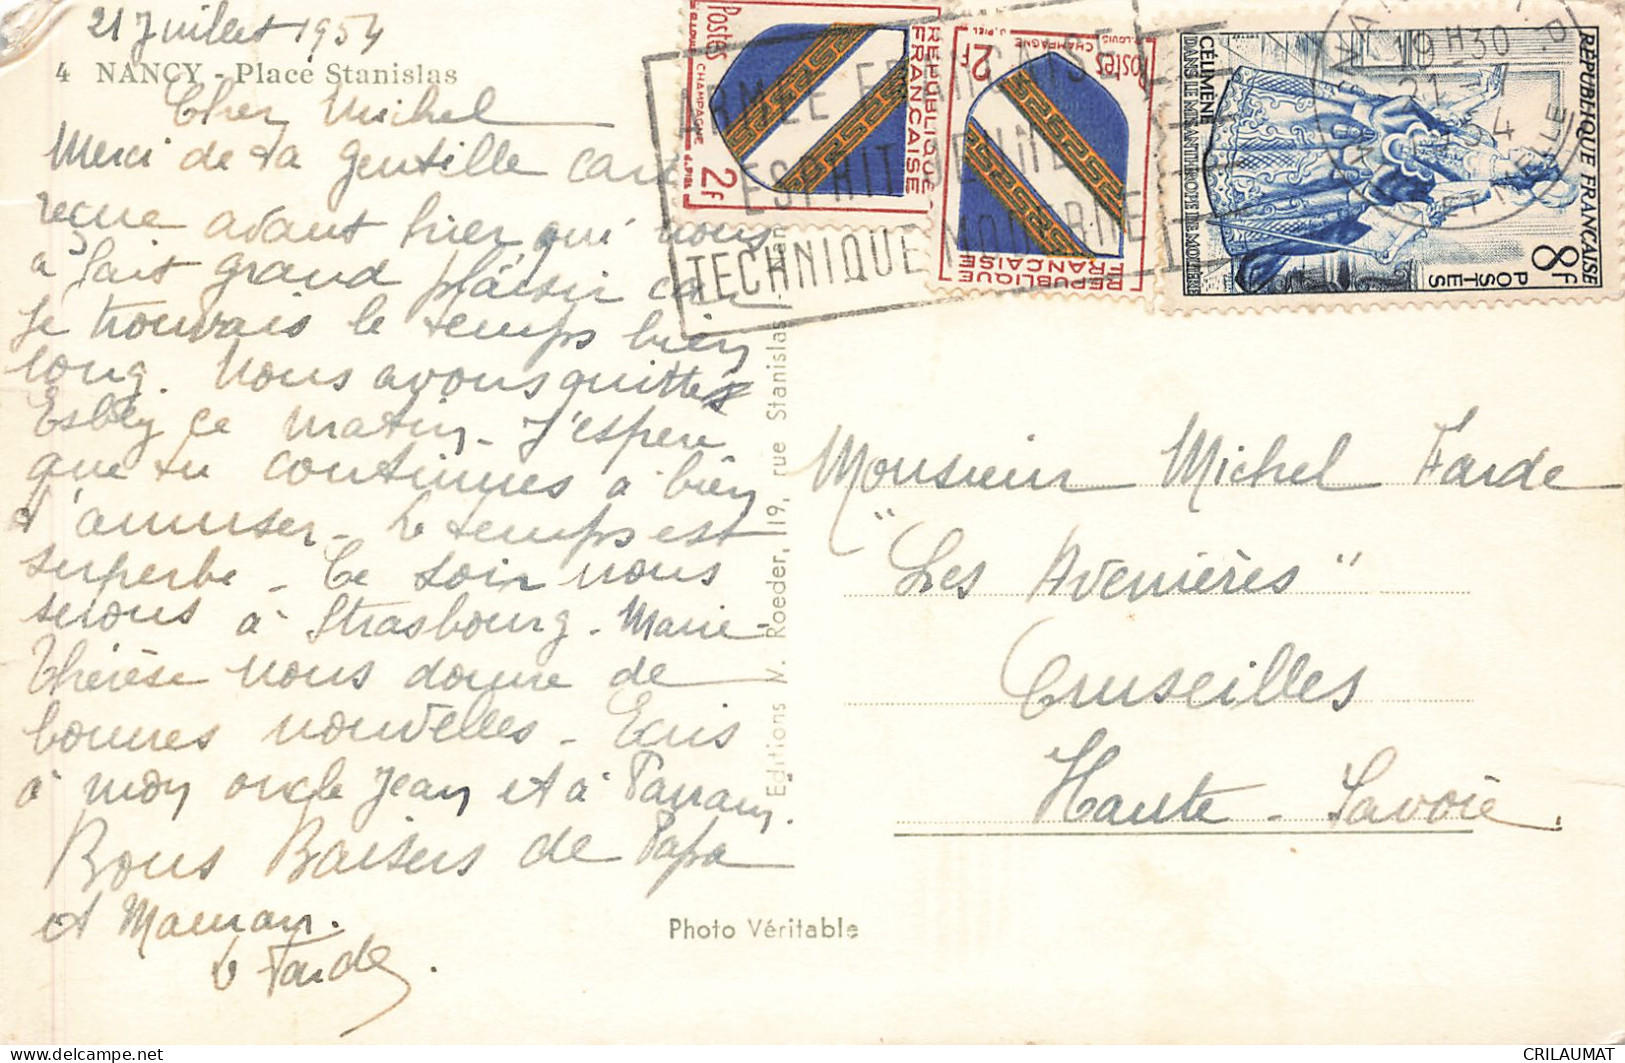 21 Juillet 1954
4 NANCY - Place Stanislas
Cher Michel
Merci de ta gentille carte
reçue avant hier qui nous
a fait grand plaisir car
je trouvais le temps bien
long. Nous avons quittés
Esbly ce matin - J'espère
que tu continues à bien
t'amuser - Le temps est
superbe - Ce soir nous
serons à Strasbourg - Marie
Thérèse nous donne de
bonnes nouvelles - Ecris
à mon oncle Jean et à Parrain.
Bons Baisers de Papa
et Maman.
Farde
Editions M. Roeder, 19, rue Stanislas
Photo Véritable
Postes
CHAMPAGNE
2F
REPUBLIQUE
FRANÇAISE
Postes
CHAMPAGNE
2F
REPUBLIQUE
FRANÇAISE
ARMÉE FRANÇAISE
ESPRIT JEUNE
TECHNIQUE MODERNE
CÉLIMÈNE
DANS LE MISANTHROPE DE MOLIÈRE
REPUBLIQUE FRANÇAISE
POSTES
8F
19H30
21-7
Monsieur Michel Farde
"Les Avenières"
Cruseilles
Haute-Savoie.
CRILAUMAT